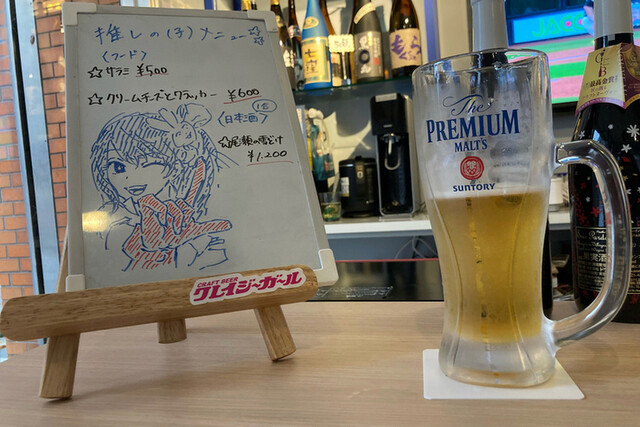 推しの(子)メニュー☆☆
〈フード〉
☆サラミ ¥500
☆クリームチーズとクラッカー ¥600
〈日本酒〉(1合)
☆尾瀬の雪どけ
¥1,200
CRAFT BEER
クレイジーガール
The
PREMIUM
MALT'S
SUNTORY
七窪